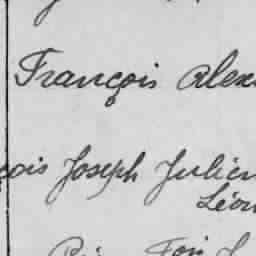 François Alex
çois Joseph Julien
Léon